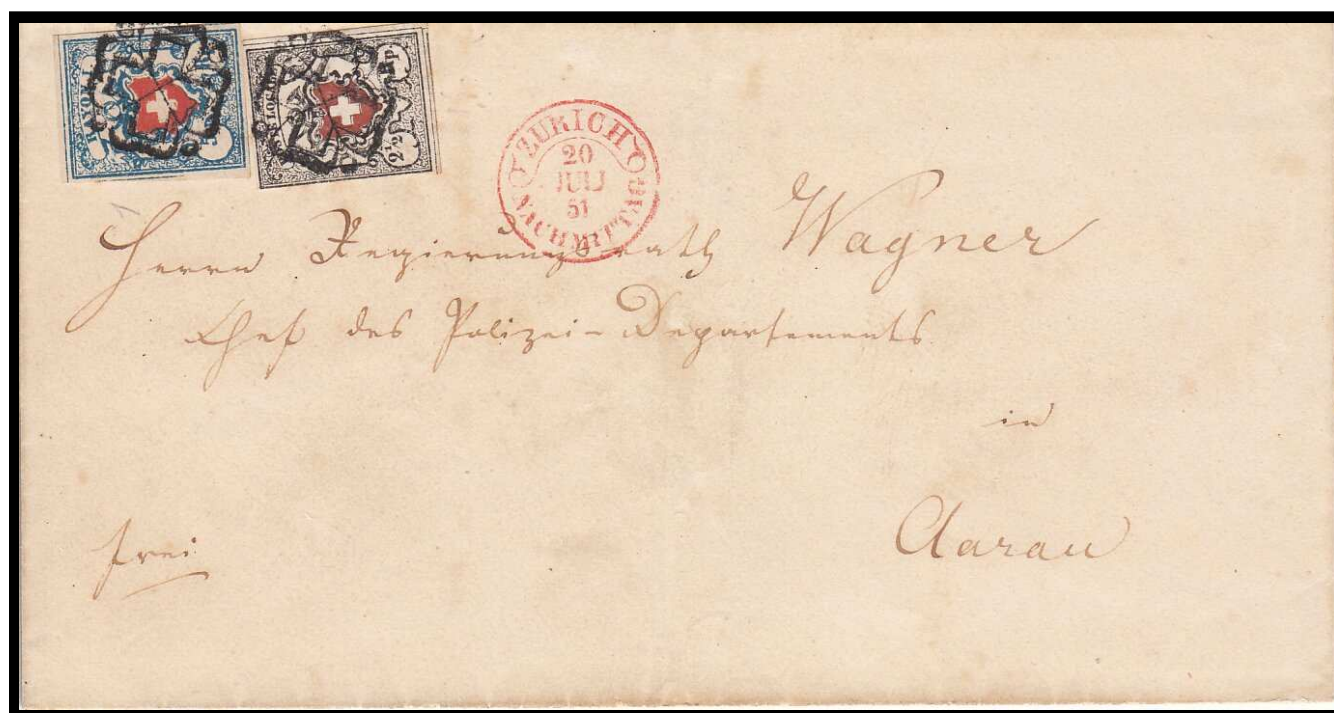 2½ Rp
ZÜRICH
20
JULI
51
NACHMITTAG
Herrn Regierungsrath Wagner
Chef des Polizei-Departements
in
Aarau
frei